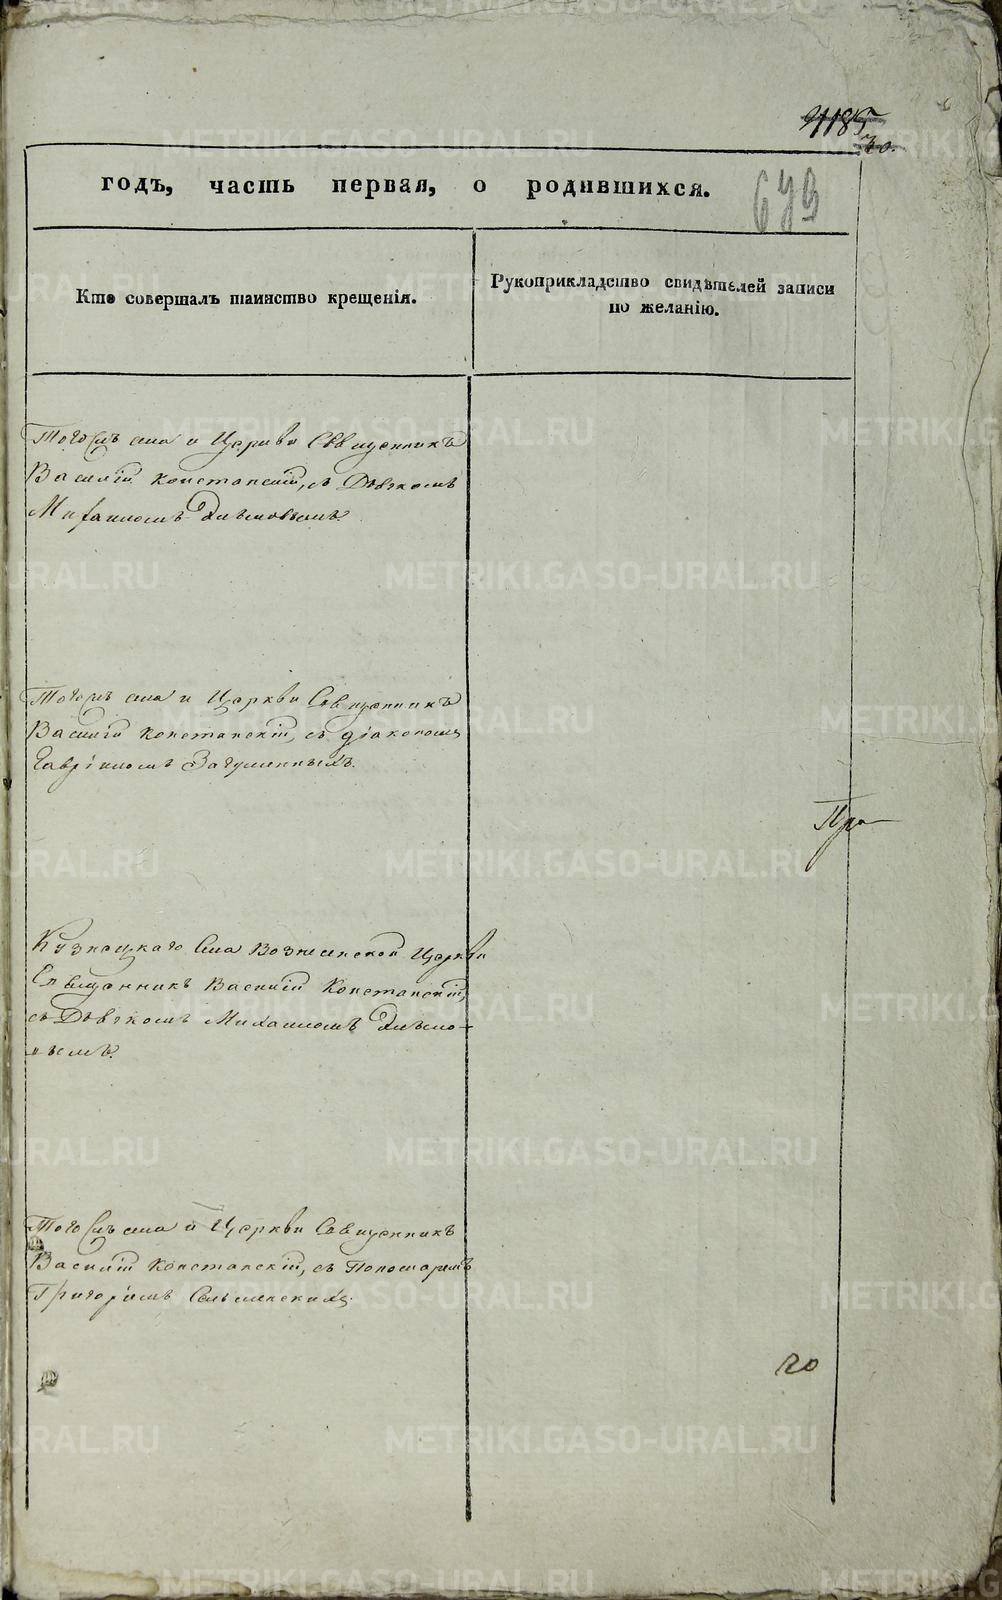 30.
годъ, часть первая, о родившихся.
693
Кто совершалъ таинство крещенія.
Рукоприкладство свидѣтелей записи
по желанію.
Тогожъ села и Церкви Священникъ
Василій Констанскій, съ Дьячкомъ
Михаиломъ
Тогожъ села и Церкви Священникъ
Василій Констанскій, съ діакономъ
Гавріиломъ Загуменныхъ.
Пра
Кузнецкаго Села Вознесенской Церкви
Священникъ Василій Констанскій,
съ Дьячкомъ Михаиломъ
Тогожъ села и Церкви Священникъ
Василій Констанскій, съ Пономаремъ
Григоріемъ
20
METRIKI.GASO-URAL.RU